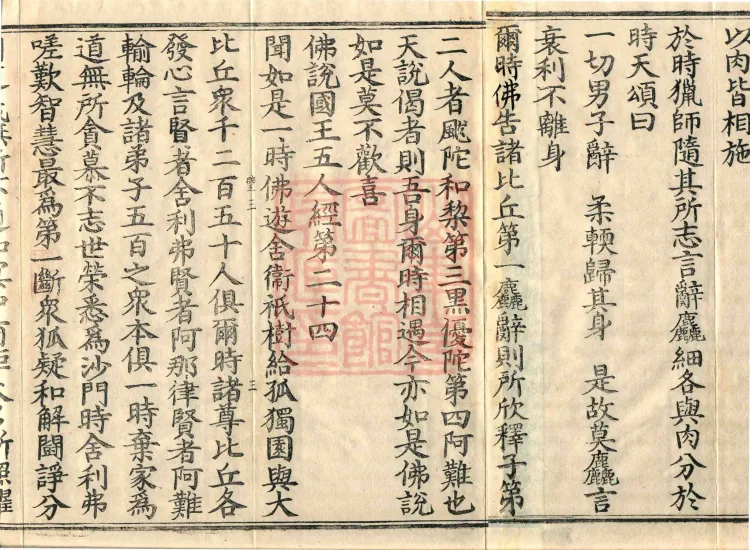 以肉皆相施
於時獵師隨其所志言辭麤細各與肉分於
時天頌曰
一切男子辭　柔輭歸其身　是故莫麤言
衰利不離身
爾時佛告諸比丘第一麤辭則所欣釋子第
二人者颰陀和黎第三黑優陀第四阿難也
天說偈者則吾身爾時相遇今亦如是佛說
如是莫不歡喜
佛說國王五人經第二十四
聞如是一時佛遊舍衞祇樹給孤獨園與大
比丘衆千二百五十人俱爾時諸尊比丘各
發心言賢者舍利弗賢者阿那律賢者阿難
輸輪及諸弟子五百之衆本俱一時棄家爲
道無所貪慕不志世榮悉爲沙門時舍利弗
嗟歎智慧最爲第一斷衆狐疑和解鬪諍分